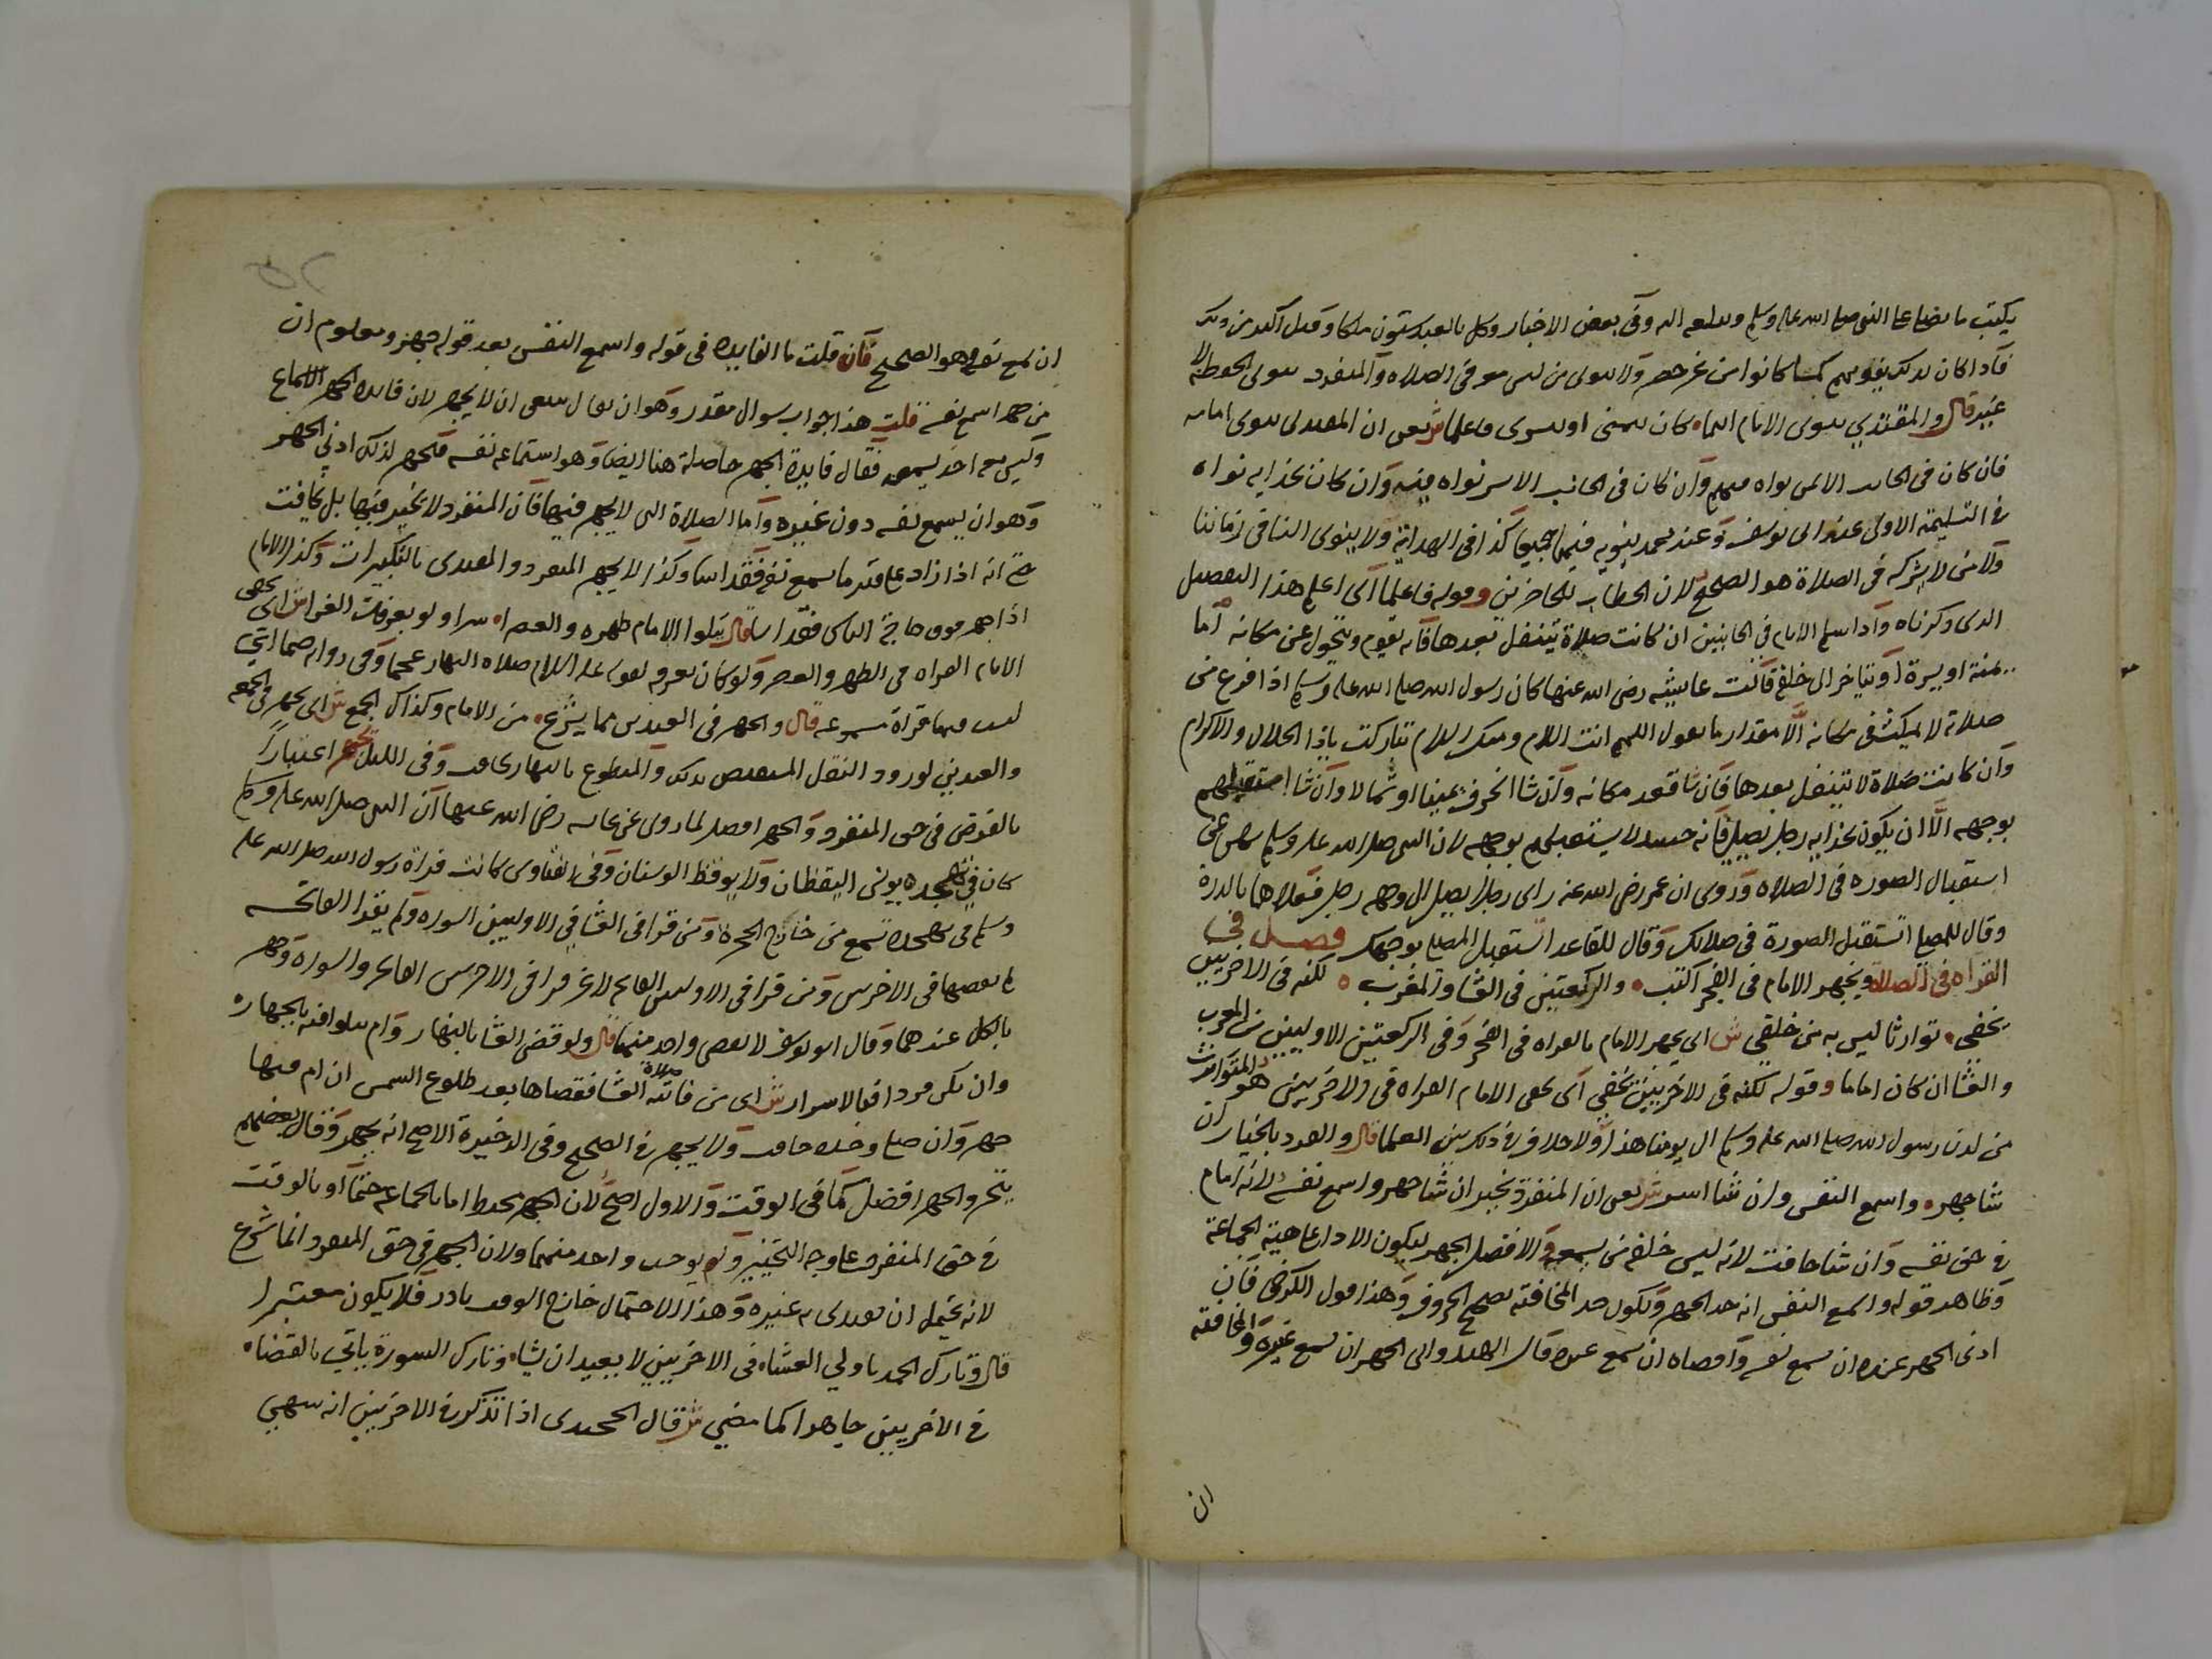 يكتب ما يصلى على النبى صلى الله عليه وسلم ويبلغه اليه وفى بعض الاخبار وكل بالعبد ستون ملكا وقيل اكثر من ذلك
فاذا كان كذلك ينويهم كيف ما كانوا من غير حصر ولا ينوى من ليس معه فى الصلاه والمنفرد ينوى الحفظة لا
غير قال والمقتدي ينوى الامام اينما كان يمنى او يسرى فاعلما ش يعنى ان المقتدى ينوى امامه
فان كان فى الجانب الايمن نواه فيهم وان كان فى الجانب الايسر نواه فيه وان كان بحذايه نواه
فى التسليمة الاولى عند ابى يوسف وعند محمد ينويه فيهما جميعا كذا فى الهداية ولا ينوى النسا فى زماننا
ولا من لا شركه فى الصلاة هو الصحيح لان الخطاب للحاضرين وقوله فاعلما اى اعلم هذا التفصيل
الذى ذكرناه واذا سلم الامام فى الجانبين ان كانت صلاة يتنفل بعدها فانه يقوم ويتحول عن مكانه اما
يمنة او يسرة او يتاخر الى خلفه قالت عايشه رضى الله عنها كان رسول الله صلى الله عليه وسلم اذا فرغ من
صلاته لا يمكث فى مكانه الا مقدار ما يقول اللهم انت السلام ومنك السلام تباركت ياذا الجلال والاكرام
وان كانت صلاة لا يتنفل بعدها فان شا قعد مكانه وان شا انحرف يمينا او شمالا وان شا استقبلهم
بوجهه الا ان يكون بحذايه رجل يصلى فانه حينيذ لا يستقبلهم بوجهه لان النبى صلى الله عليه وسلم نهى عن
استقبال الصوره فى الصلاه وروى ان عمر رضى الله عنه راى رجلا يصلى الى وجه رجل فعلاهما بالدرة
وقال للمصلى اتستقبل الصورة فى صلاتك وقال للقاعد اتستقبل المصلى بوجهك فصل فى
القراه فى الصلاة ويجهر الامام فى الفجر اكتب والركعتين فى العشا والمغرب لكنه فى الاخريين
يخفى توارثا ليس به من خلفى ش اى يجهر الامام بالقراه فى الفجر وفى الركعتين الاوليين من المغرب
والعشا ان كان اماما وقوله لكنه فى الاخريين يخفى اى يخفى الامام القراه فى الاخريين هو المتوارث
من لدن رسول الله صلى الله عليه وسلم الى يومنا هذا ولا خلاف فى ذلك بين العلما قال والفرد بالخيار ان
شا جهر واسمع النفس وان شا اسر ش يعنى ان المنفرد يخير ان شا جهر واسمع نفسه لانه امام
فى حق نفسه وان شا خافت لانه ليس خلفه من يسمعه والافضل الجهر ليكون الاداء على هيئة الجماعة
وظاهر قوله واسمع النفس انه حد الجهر ويكون حد المخافته تصحيح الحروف وهذا قول الكرخى فان
ادنى الجهر عنده ان يسمع نفسه واقصاه ان يسمع غيره وقال الهندوانى الجهر ان يسمع غيره والمخافته
ان
ان يسمع نفسه وهو الصحيح فان قلت ما الفايده فى قوله واسمع النفس بعد قوله جهر ومعلوم ان
من جهر اسمع نفسه قلت هذا جواب سوال مقدر وهو ان يقال ينبغى ان لا يجهر لان فايدة الجهر الاسماع
وليس معه احد يسمعه فقال فايدة الجهر حاصلة هنا ايضا وهو استماعه نفسه فيجهر لذلك ادنى الجهر
وهو ان يسمع نفسه دون غيره واما الصلاة التى لا يجهر فيها فان المنفرد لا يخير فيها بل يخافت
حتى انه اذا زاد على قدر ما يسمع نفسه فقد اسا وكذا لا يجهر المنفرد والمقتدى بالتكبيرات وكذا الامام
اذا جهر فوق حاجة الناس فقد اسا قال يتلوا الامام ظهره والعصرا سرا ولو بعرفات الغرا ش اى يخفى
الامام القراه فى الظهر والعصر ولو كان بعرفه لقوله عليه السلام صلاه النهار عجما وفى روايه صما اي
ليست فيها قراة مسموعه قال والجهر فى العيدين مما يشرع من الامام وكذاك الجمع ش اى يجهر فى الجمعه
والعيدين لورود النقل المستفيض بذلك والمتطوع بالنهار يخافت وفى الليل يخير اعتبارا
بالفرض فى حق المنفرد والجهر افضل لما روى عن عايشه رضى الله عنها ان النبى صلى الله عليه وسلم
كان فى تهجده يونس اليقظان ولا يوقظ الوسنان وفى الفتاوى كانت قراة رسول الله صلى الله عليه
وسلم فى تهجده تسمع من خارج الحجرة ومن قرا فى العشا فى الاوليين السوره ولم يقرا الفاتحه
لم يقضها فى الاخريين ومن قرا فى الاوليين الفاتحه لا غير قرا فى الاخريين الفاتحه والسوره وجهر
بالكل عندهما وقال ابو يوسف لا يقضى واحد منهما قال ولو قضى العشا بالنهار وام يتلوا فيه بالجهار
وان يكن فردا فبالاسرار ش اى من فاتته صلاة العشا فقضاها بعد طلوع الشمس ان ام فيها
جهر وان صلى وحده خافت ولا يجهر فى الصحيح وفى الذخيرة الاصح انه يجهر وقال بعضهم
يتخير والجهر افضل كما فى الوقت والاول اصح لان الجهر يختص اما بالجماعه حتما او بالوقت
فى حق المنفرد على وجه التخيير ولم يوجد واحد منهما ولان الجهر فى حق المنفرد انما شرع
لانه يحتمل ان يقتدى به غيره وهذا الاحتمال خارج الوقت نادر فلا يكون معتبرا
قال وتارك الحمد باولي العشاء فى الاخريين لا يعيد ان يشاء وتارك السورة ياتي بالقضاء
فى الاخريين جاهرا كما مضي ش قال الخجندى اذا تذكر فى الاخريين انه سهى